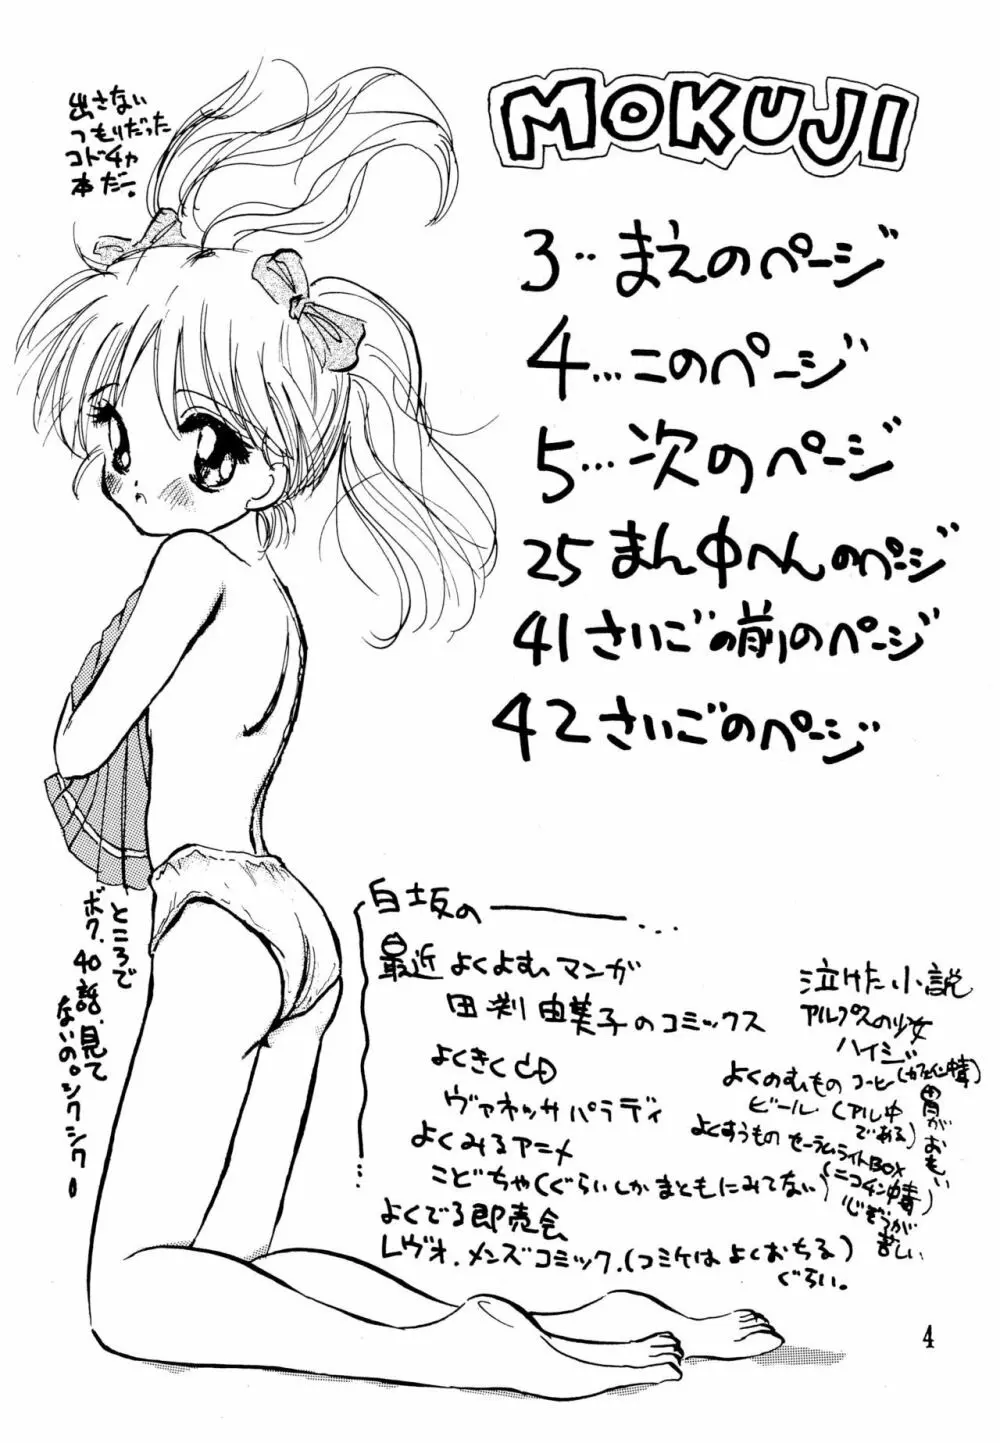 MOKUJI
出さない
つもりだった
コドチャ
本だー。
3‥まえのページ
4…このページ
5…次のページ
25まん中へんのページ
41さいごの前のページ
42さいごのページ
ところで
ボク、40話、見て
ないの。シクシクー
白土坂の
最近よくよむマンガ
田渕由美子のコミックス
よくきくCD
ヴァネッサパラディ
よくみるアニメ
こどちゃ(ぐらいしかまともにみてない)
よくでる即売会
レヴォ.メンズコミック.(コミケはよくおちる)
ぐらい。
泣けた小説
アルプスの少女
ハイジ
よくのむもの コーヒー(カフェイン中毒)
ビール.(アル中
である)
胃がおもい
よくすうもの セーラムライトBOX
(ニコチン中毒)
心ぞうが
苦しい
4